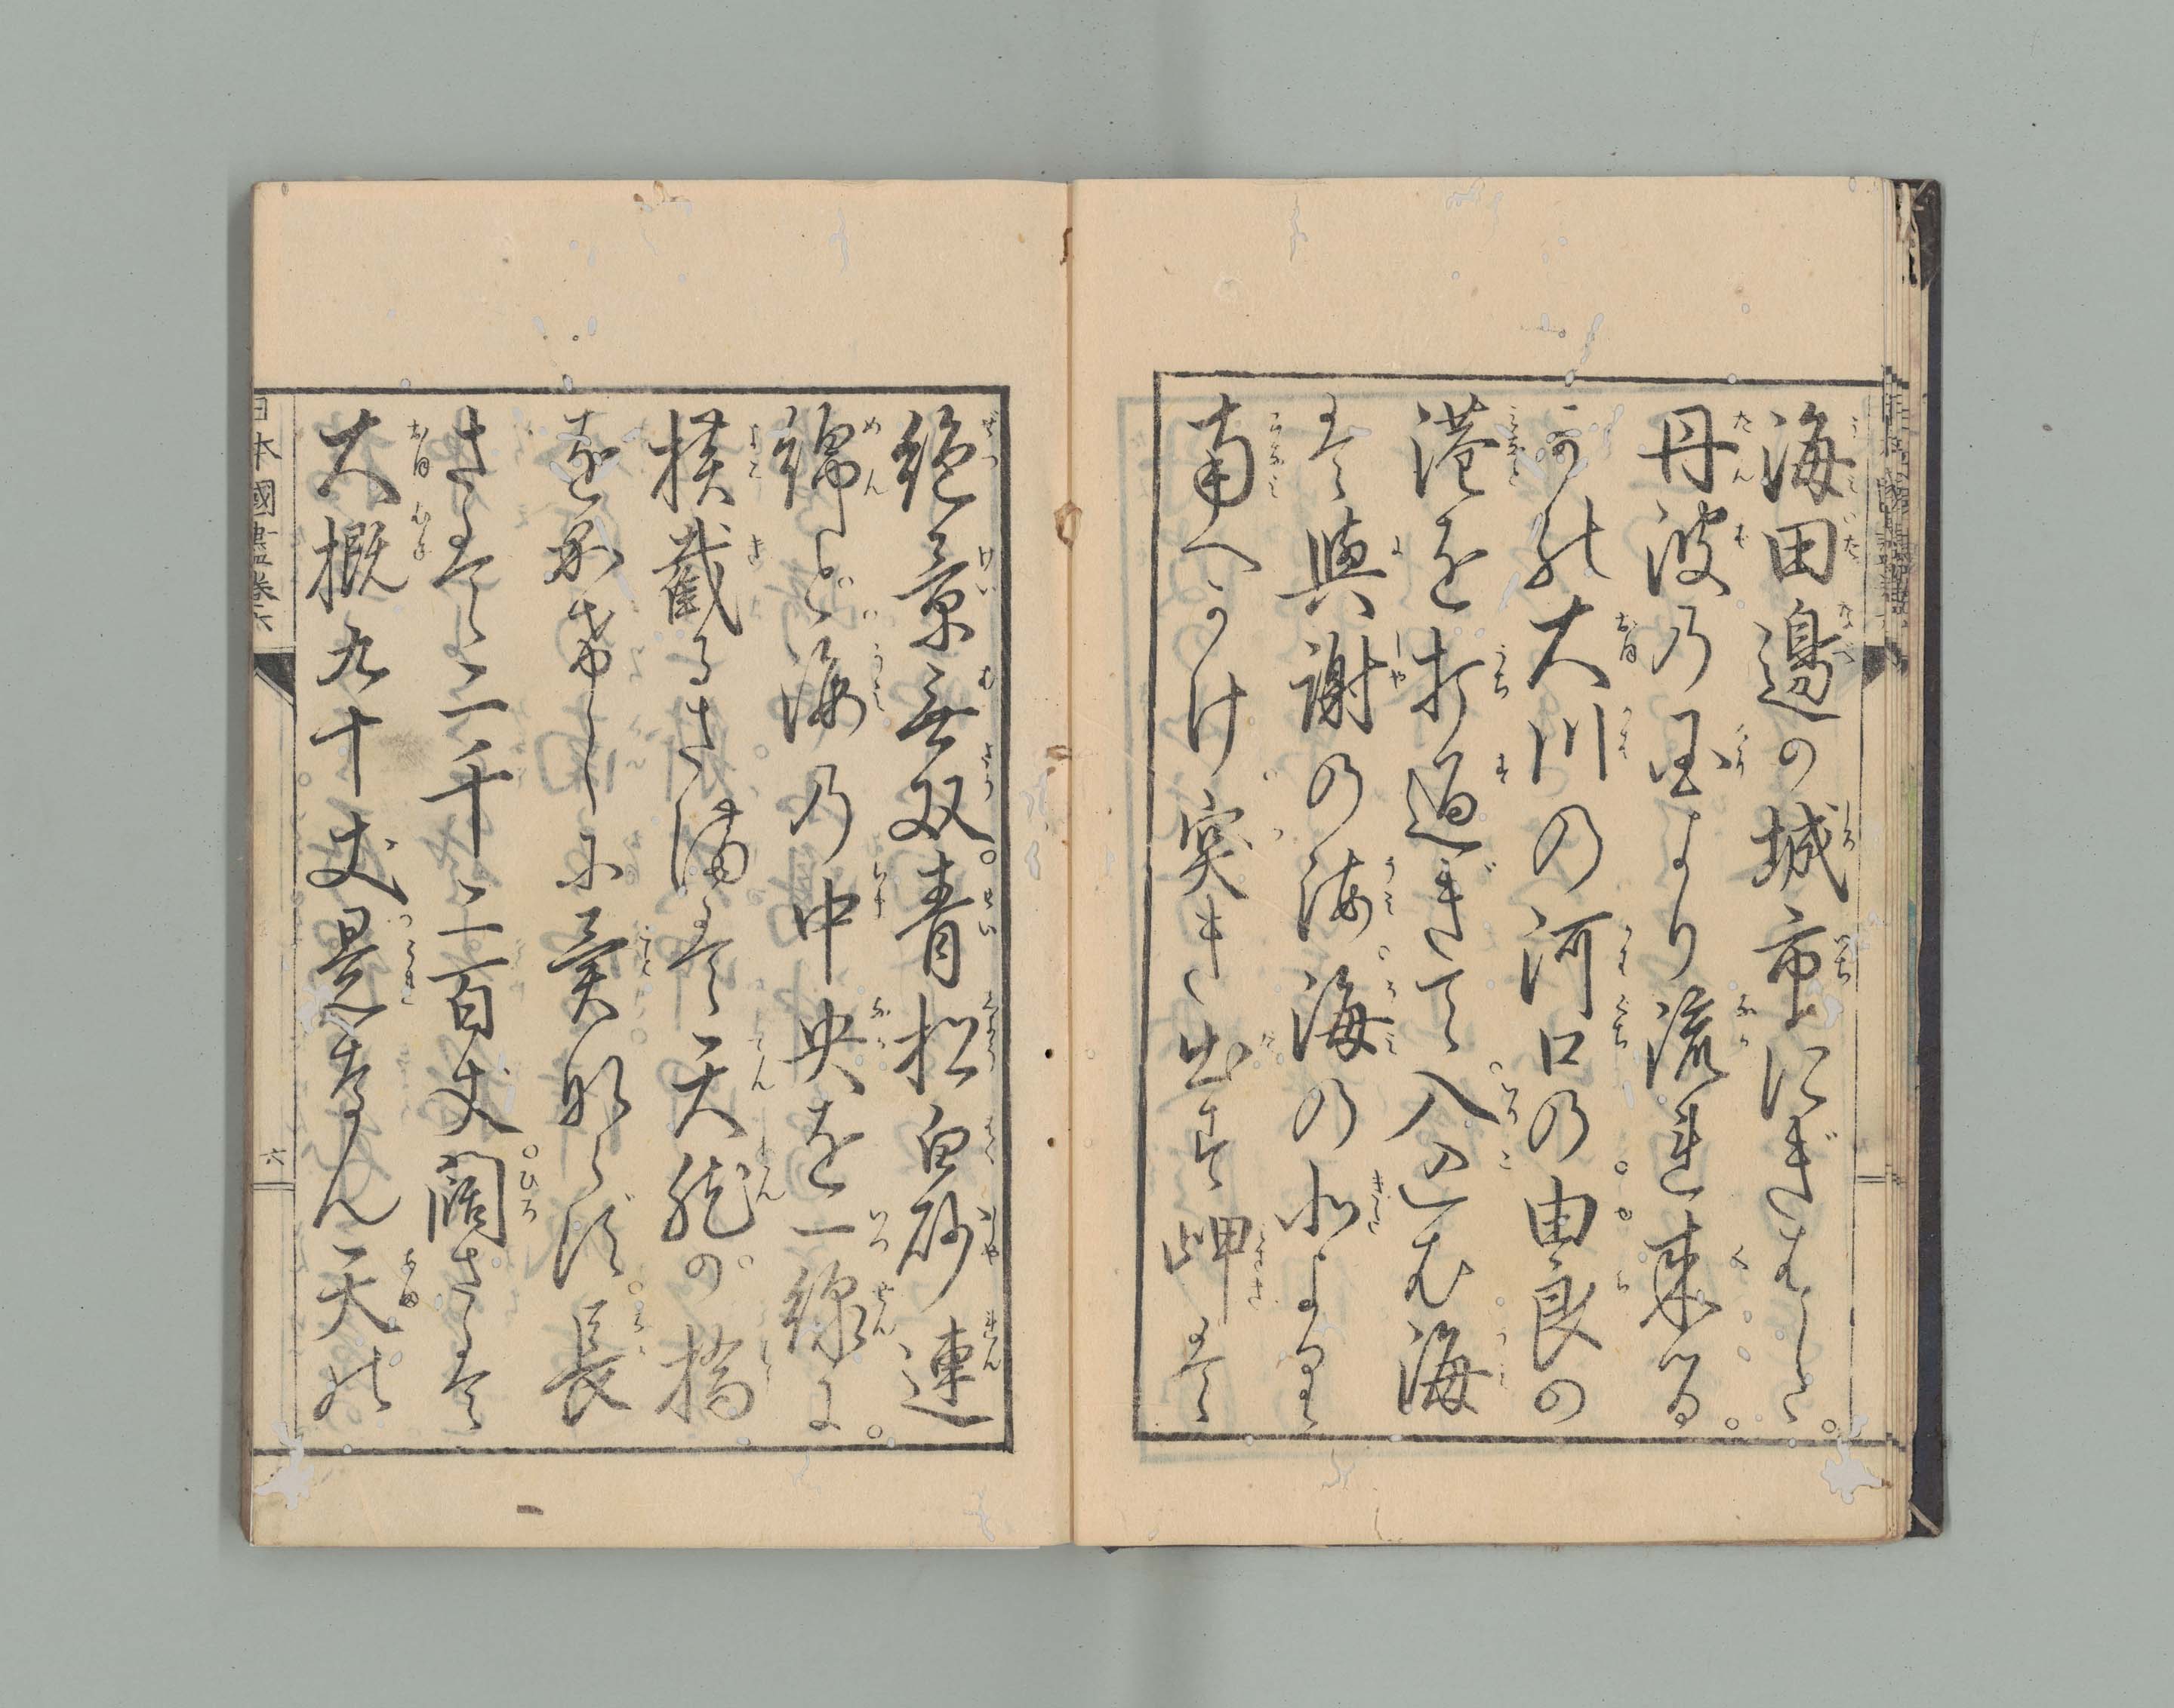 海田邊の城市にぎはしく。
丹波の国より流れ来る。
かの大川の河口の。由良の
港を打過ぎて。入込む海
は與謝の海。海の北より
南へかけ。突き出す岬は
絶景無双。青松白砂連
綿と。海の中央を一線に。
横截るさまは天然の。橋
を架けしに異ならず。長
さは二千二百丈。闊さは
大概九十丈是なん天の
日本國盡卷六
六